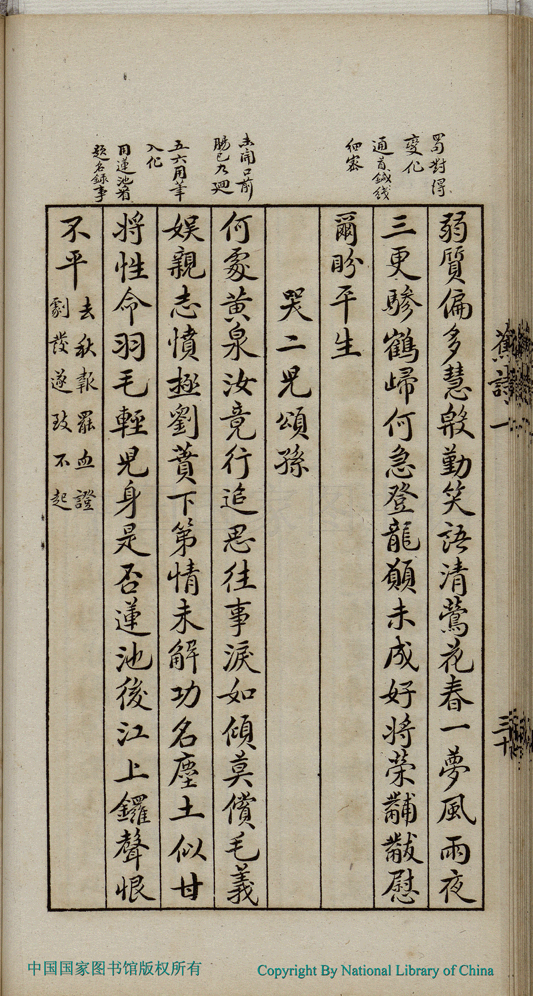 蜀對得
變化
通首鍼綫
細密
未開口前
腸已九廻
五六用筆
入化
用蓮池者
題名錄事
弱質偏多慧殷勤笑語清鶯花春一夢風雨夜
三更驂鶴歸何急登龍願未成好將榮黼黻慰
爾盼平生
哭二兒頌孫
何處黃泉汝竟行追思往事淚如傾莫償毛義
娛親志憤極劉蕡下第情未解功名塵土似甘
將性命羽毛輕兒身是否蓮池後江上鑼聲恨
不平
去秋報罷血證
劇發遂致不起
詩一
三十
中国国家图书馆版权所有
Copyright By National Library of China